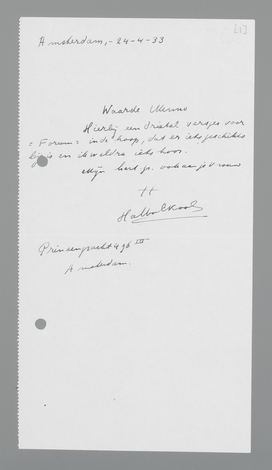 [1]
Amsterdam, - 24-4-33
Waarde Menno
Hierbij een drietal versjes voor
= Forum = in de hoop, dat er iets geschikts
bij is en ik weldra iets hoor.
Mijn hart. gr. ook aan je vrouw
tt
Halbo C Kool
Prinsengracht 496 III
Amsterdam.